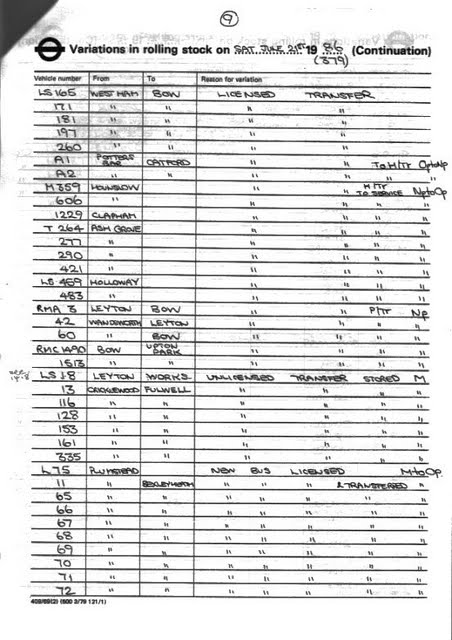 9
Variations in rolling stock on SAT JUNE 21ST 19 86 (Continuation)
(379)
Vehicle number From To Reason for variation
LS 165 WEST HAM BOW LICENSED TRANSFER
171 " " " "
181 " " " "
197 " " " "
260 " " " "
A1 POTTERS BAR CATFORD " " TO H/TR Op to Np
A2 " " " " " "
M 359 HOUNSLOW " " H/TR TO SERVICE Np to Op
606 " " " " " "
1229 CLAPHAM " " " " "
T 264 ASH GROVE " " " " "
277 " " " " " "
290 " " " " " "
421 " " " " " "
LS 459 HOLLOWAY " " " " "
483 " " " " " "
RMA 3 LEYTON BOW " " P/TR Np
42 WANDSWORTH LEYTON " " " "
60 " BOW " " " "
RMC 1490 BOW UPTON PARK " " " "
1513 " " " " " "
LS 18 LEYTON WORKS UNLICENSED TRANSFER STORED M
13 CRICKLEWOOD FULWELL " " " "
116 " " " " " "
128 " " " " " "
153 " " " " " "
161 " " " " " "
335 " " " " " "
L 75 PLUMSTEAD NEW BUS LICENSED M to Op
11 " BEXLEYHEATH " " " & TRANSFERRED "
65 " " " " " " "
66 " " " " " " "
67 " " " " " " "
68 " " " " " " "
69 " " " " " " "
70 " " " " " " "
71 " " " " " " "
72 " " " " " " "
409/69(2) (600 3/79 121/1)